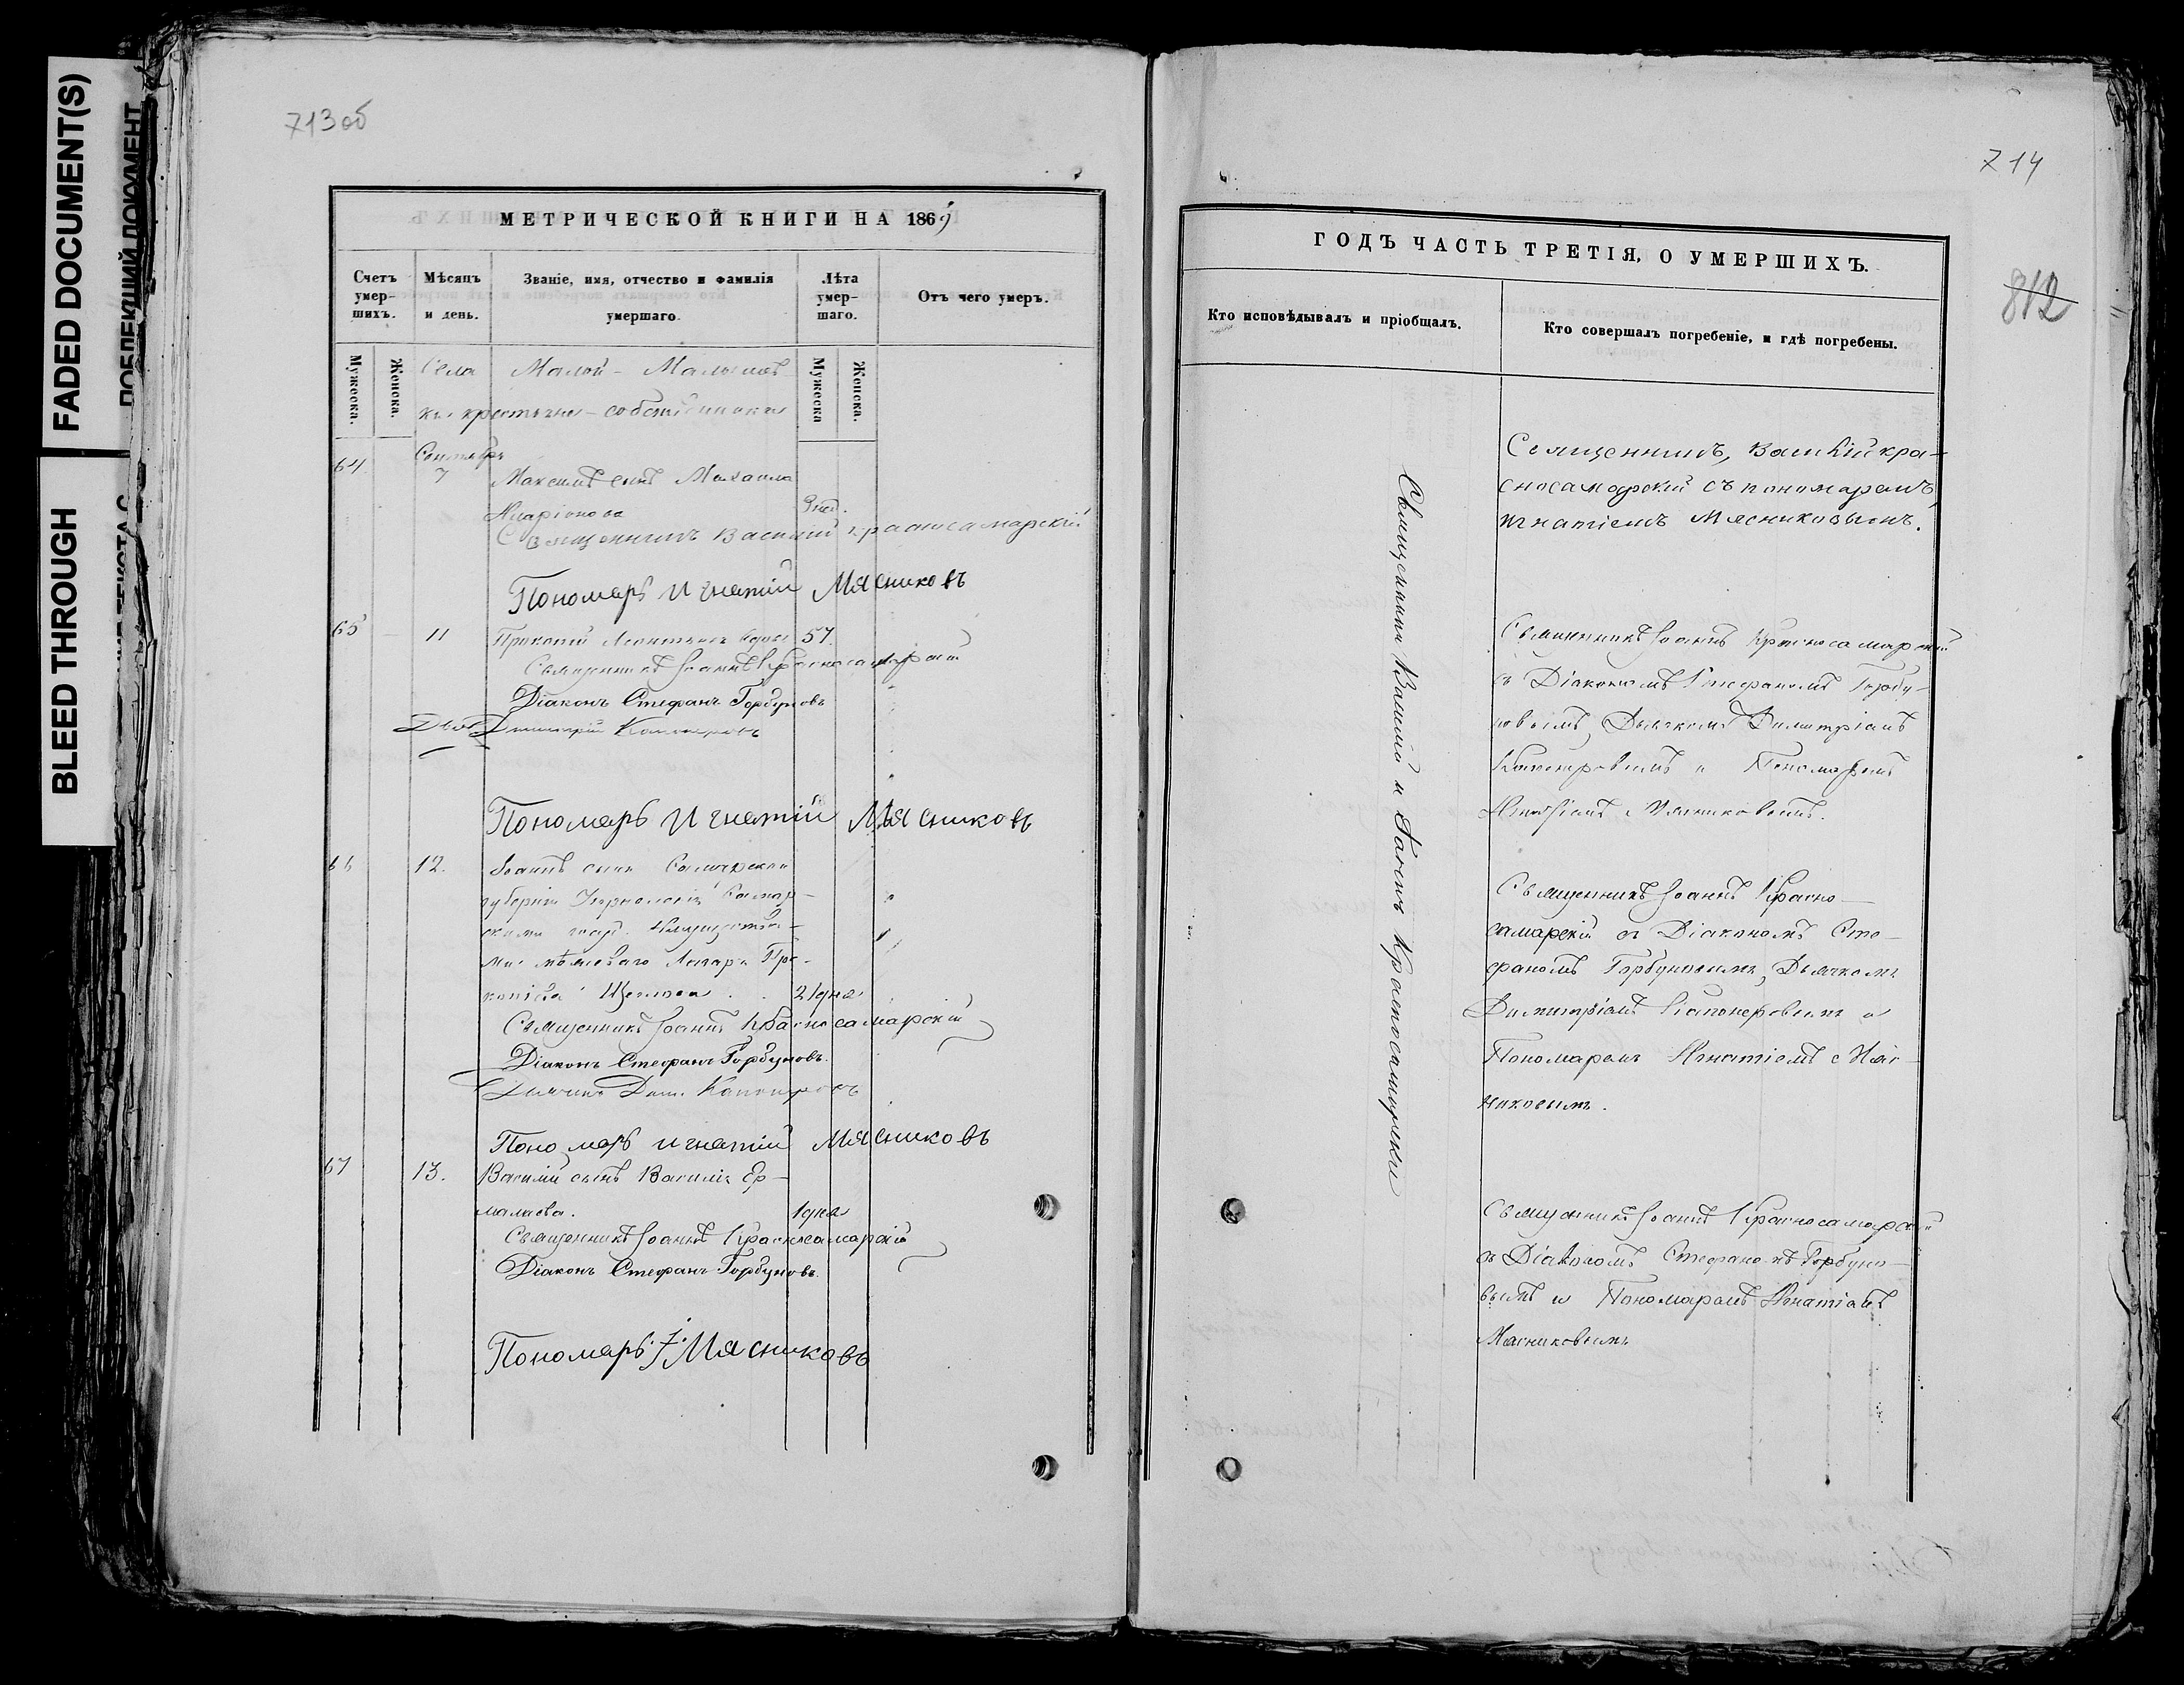 FADED DOCUMENT(S)
BLEED THROUGH
713 об
МЕТРИЧЕСКОЙ КНИГИ НА 1869
Счетъ умер-шихъ.
Мѣсяцъ и день.
Званіе, имя, отчество и фамилія умершаго.
Лѣта умер-шаго.
Отъ чего умеръ.
Мужеска.
Женска.
Мужеска
Женска.
Села Малой - Малышев
ки крестьяне - собственники
64. Сентябрь
7 Максимъ сынъ Михаила
Иларіонова 9 нед.
Священникъ Василій Красносамарскій
Пономарь Игнатій Мясниковъ
65 11 Прокопій Леонтьевъ 57.
Священникъ Іоаннъ Красносамарскій
Діаконъ Стефанъ Горбуновъ
Дмитрій Капонеровъ
Пономарь Игнатій Мясниковъ
66 12. Іоаннъ сынъ Самарской
губерніи
Про-
копіева 21 дня
Священникъ Іоаннъ Красносамарскій
Діаконъ Стефанъ Горбуновъ.
Дьячекъ Дим. Капонеровъ
Пономарь Игнатій Мясниковъ
67 13. Василій сынъ Василія Ер-
молаева. 1 дня
Священникъ Іоаннъ Красносамарскій
Діаконъ Стефанъ Горбуновъ.
Пономарь І. Мясниковъ
714
812
ГОДЪ ЧАСТЬ ТРЕТІЯ, О УМЕРШИХЪ.
Кто исповѣдывалъ и пріобщалъ.
Кто совершалъ погребеніе, и гдѣ погребены.
Священники Василій и Іоаннъ Красносамарскіи
Священникъ, Василій кра-
сносамарскій съ пономаремъ
игнатіемъ Мясниковымъ.
Священникъ Іоаннъ Красносамарскій
съ Діакономъ Стефаномъ Горбу-
новымъ, Дьячкомъ Димитріемъ
Капонеровымъ и Пономаремъ
Игнатіемъ Мясниковымъ.
Священникъ Іоаннъ Красно-
самарскій съ Діакономъ Сте-
фаномъ Горбуновымъ, Дьячкомъ
Димитріемъ Капонеровымъ и
Пономаремъ Игнатіемъ Мяс-
никовымъ.
Священникъ Іоаннъ Красносамарскій
съ Діакономъ Стефаномъ Горбуно-
вымъ и Пономаремъ Игнатіемъ
Мясниковымъ